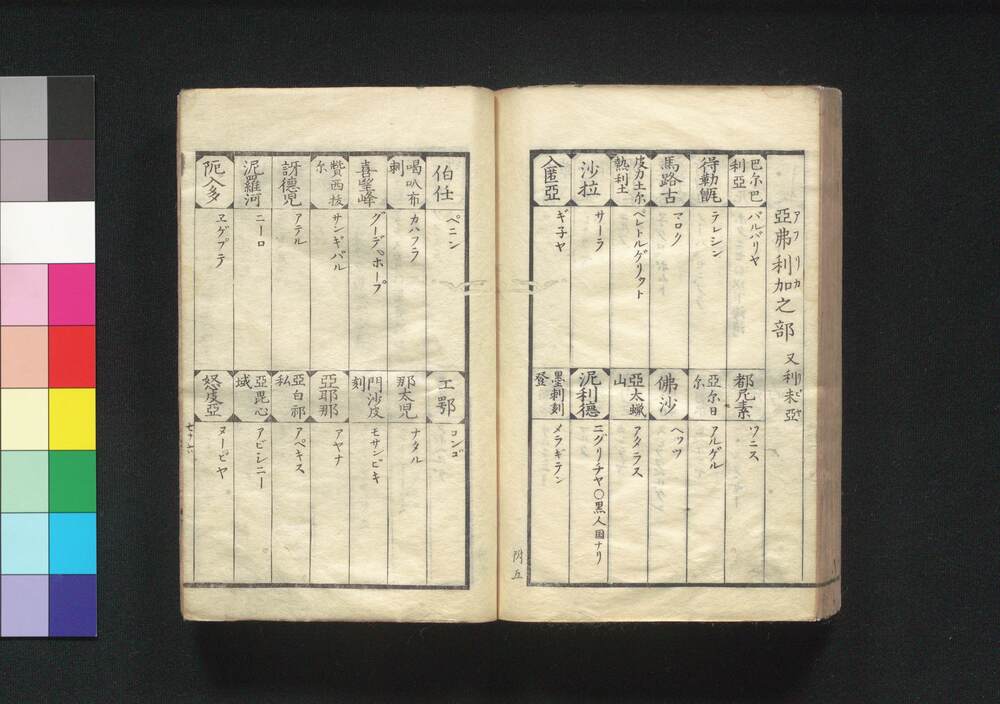 亞弗利加之部 又利未亞
アフリカ
巴尓巴利亞 バルバリヤ
得勒甑 テレシン
馬路古 マロク
皮力土尓熱利土 ペレトルゲリウト
沙拉 サーラ
入匿亞 ギ子ヤ
都尼素 ツニス
亞尓日尓 アルゲル
佛沙 ヘッツ
亞太蠟山 アタラス
泥利德 ニグリチヤ〇黒人国ナリ
墨刺刻登 メラギラン
附五
伯任 ペニン
喝叭布刺 カハフラ
喜望峰 グーデ、ホープ
贊西拔尓 サンギバル
訝德兒 アテル
泥羅河 ニーロ
阨入多 ヱゲプテ
工鄂 コンゴ
那太兒 ナタル
門沙皮刻 モサンビキ
亞耶那 アヤナ
亞白祁私 アペキス
亞毘心域 アビシニー
怒皮亞 ヌービヤ